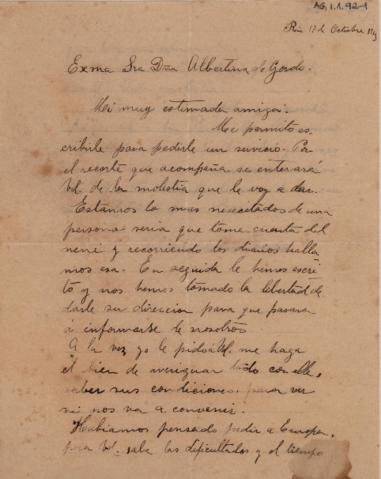 AG.1.1.92-1
Rio 17 de Octubre
Exma Sra Dña Albertina de Gordo.
Mi muy estimada amiga:
Me permito es-
cribirle para pedirle un servicio. Por
el recorte que acompaña se enterará
Ud. de la molestia que le voy a dar.
Estamos lo mas necesitados de una
persona seria que tome cuenta del
nene y recorriendo los diarios halla
mos esa. En seguida le hemos escri
to y nos hemos tomado la libertad de
darle su direccion para que pasara
á informarse de nosotros
A la vez yo le pido á Ud. me haga
el bien de averiguar todo con ella,
saber sus condiciones, para ver
si nos va a convenir.
Habiamos pensado pedir a Europa,
pero Ud. sabe las dificultades y el tiempo